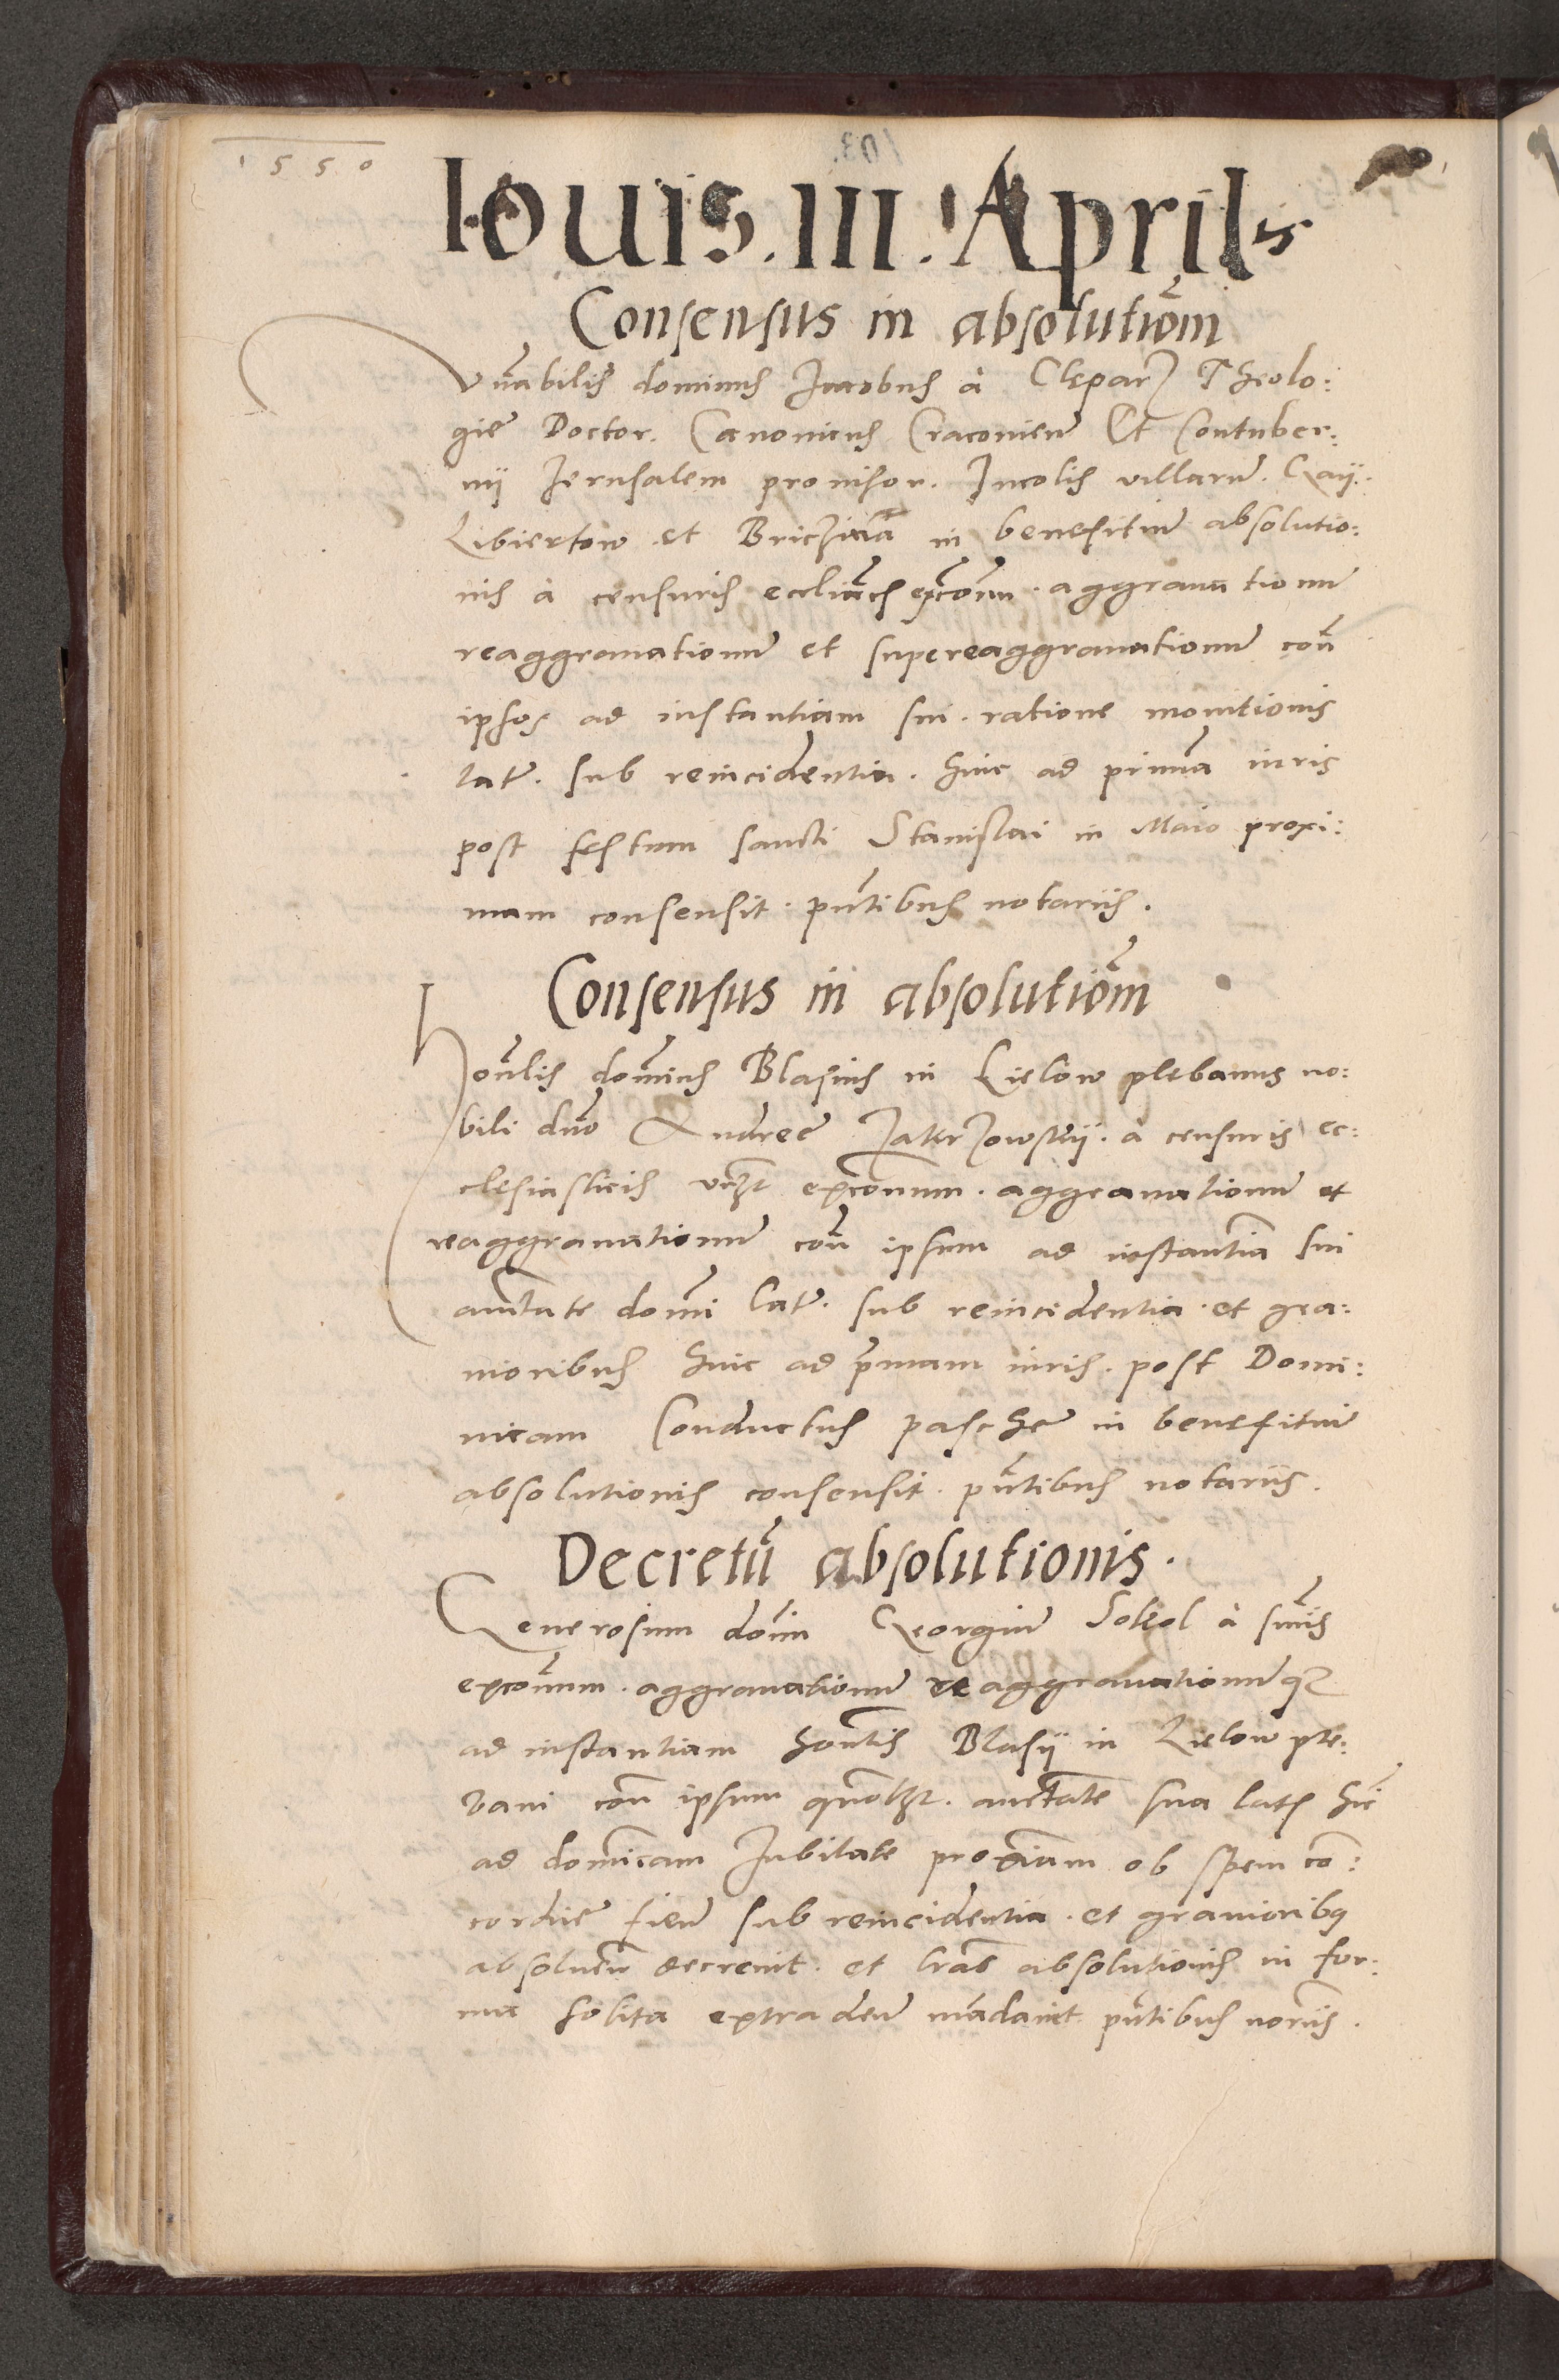 1550
Iouis. III. Aprilis
Consensus in absolutiõm
Vñabilis dominus Jacobus à Clepar Theolo:
gie Doctor. Canonicus Cracovien̄ Et Contuber:
nij Jerusalem provisor. Incolis villarū. Gaij.
Libiertow et Bricziana in benefitiū absolutio:
nis à censuris eccliarū excõnum. aggravationū
reaggravationū et supereaggravationū coñ
ipsos ad instantiam sui. ratione monitionis
latar̄. sub reincidentia. hinc ad primã iuris
post festum sancti Stanislai in Maio proxi:
mam consensit. pñtibus notariis.
Consensus in absolutiõm
Hoñlis dom̃inus Blasius in Lielow plebanus no:
bili dño Andree Jakrzowskij. à censuris ec:
clesiasticis vcz excõnum. aggravationū et
reaggravationū coñ ipsum ad instantiã sui
auctate domñi latar̄. sub reincidentia. et gra:
vioribus hinc ad p̃mam iuris. post Domi:
nicam Conductus pasche in benefitiū
absolutionis consensit. pñtibus notariis.
Decretũ absolutionis.
Generosum doñm Georgiū Sokol à sñiis
excõnum. aggravationū reaggravationūq3
ad instantiam hoñlis Blasij in Lielow ple:
bani coñ ipsum quõlzt. auctate sua latis hic
ad domĩcam Jubilate proximam ob spem cõ:
cordie fien̄ sub reincidentia. et gravioribq
absolven̄ decrevit. et lr̃as absolutionis in for:
ma solita extraden̄ mãdavit pñtibus noriis.